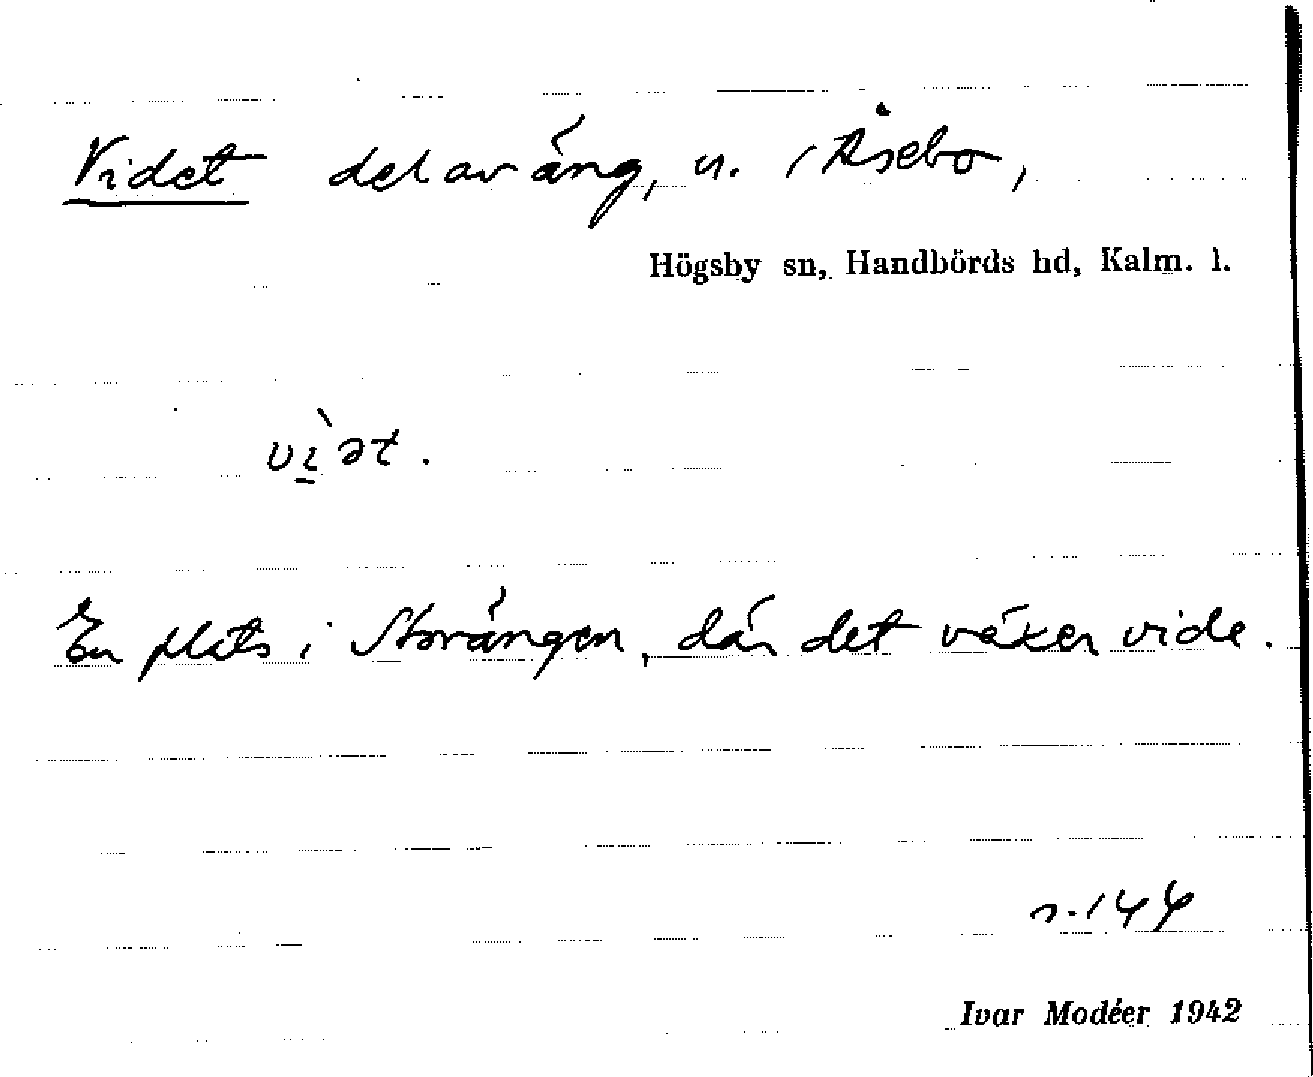 Videt del av äng, n. i Åsebo,
Högsby sn, Handbörds hd, Kalm. l.
vì̠ət.
En plats i Storängen, där det växer vide.
s. 144
Ivar Modéer 1942